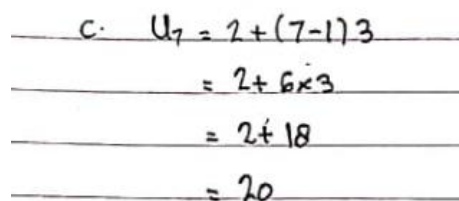 c. U₇ = 2 + (7-1)3
= 2 + 6×3
= 2 + 18
= 20